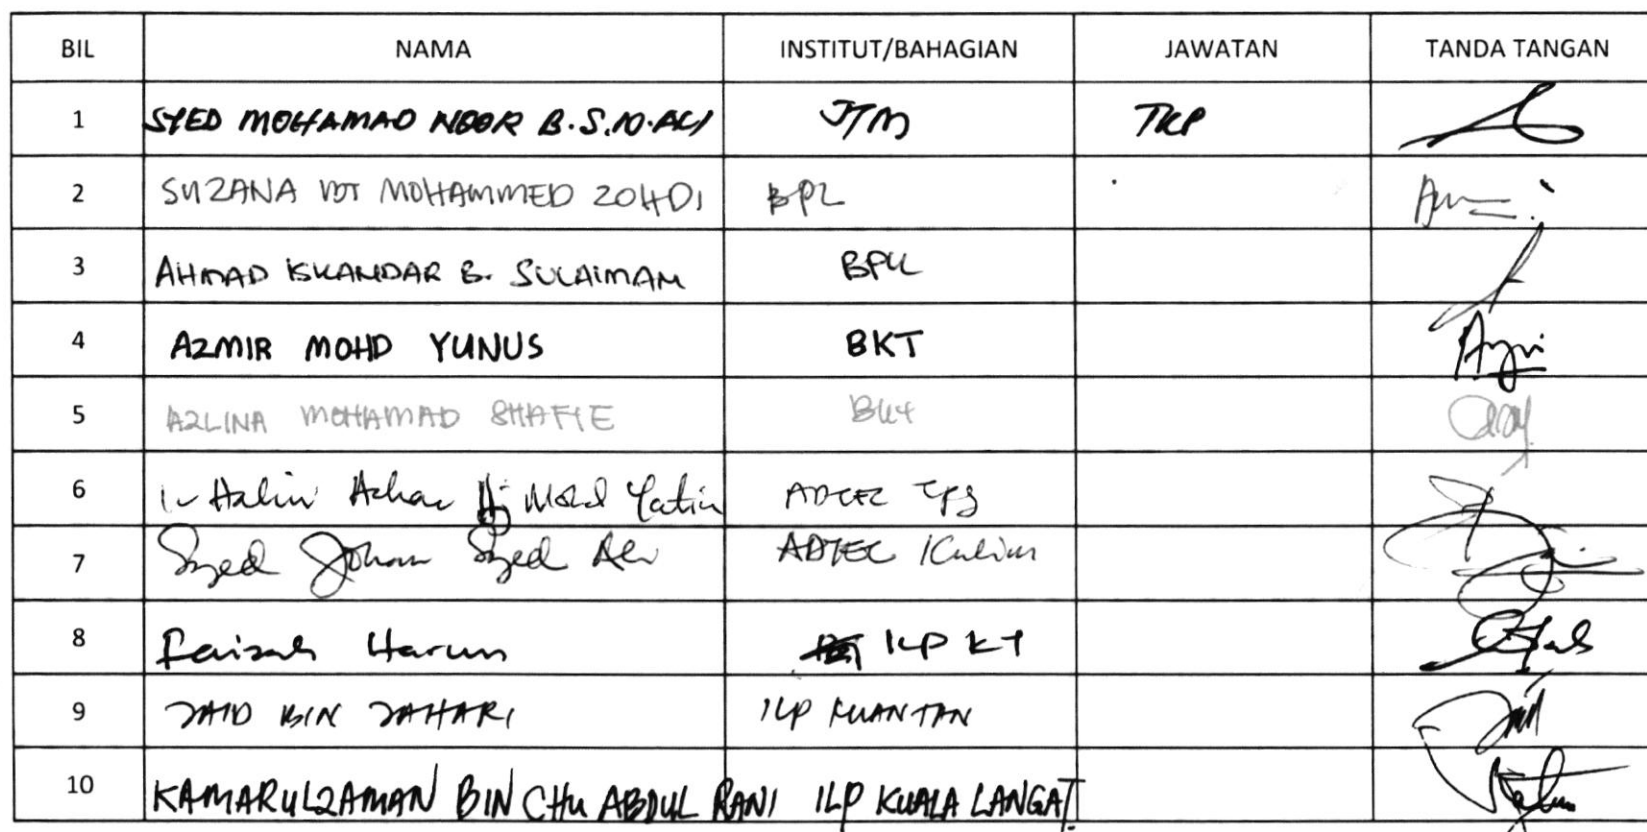 BIL NAMA INSTITUT/BAHAGIAN JAWATAN TANDA TANGAN
1 SYED MOHAMAD NOOR B.S.M.ALI JTM TKP
2 SUZANA BT MOHAMMED ZOHDI BPL
3 AHMAD ISKANDAR B. SULAIMAN BPLL
4 AZMIR MOHD YUNUS BKT
5 AZLINA MOHAMAD SHAFIE BKT
6 Ir Halim Azhar Hj Mohd Yatim ADTEC
7 Syed Johan Syed Ali ADTEC Kulim
8 Faizah Harun ILP KT
9 ZAID BIN ZAHARI ILP KUANTAN
10 KAMARULZAMAN BIN CHU ABDUL RANI ILP KUALA LANGAT